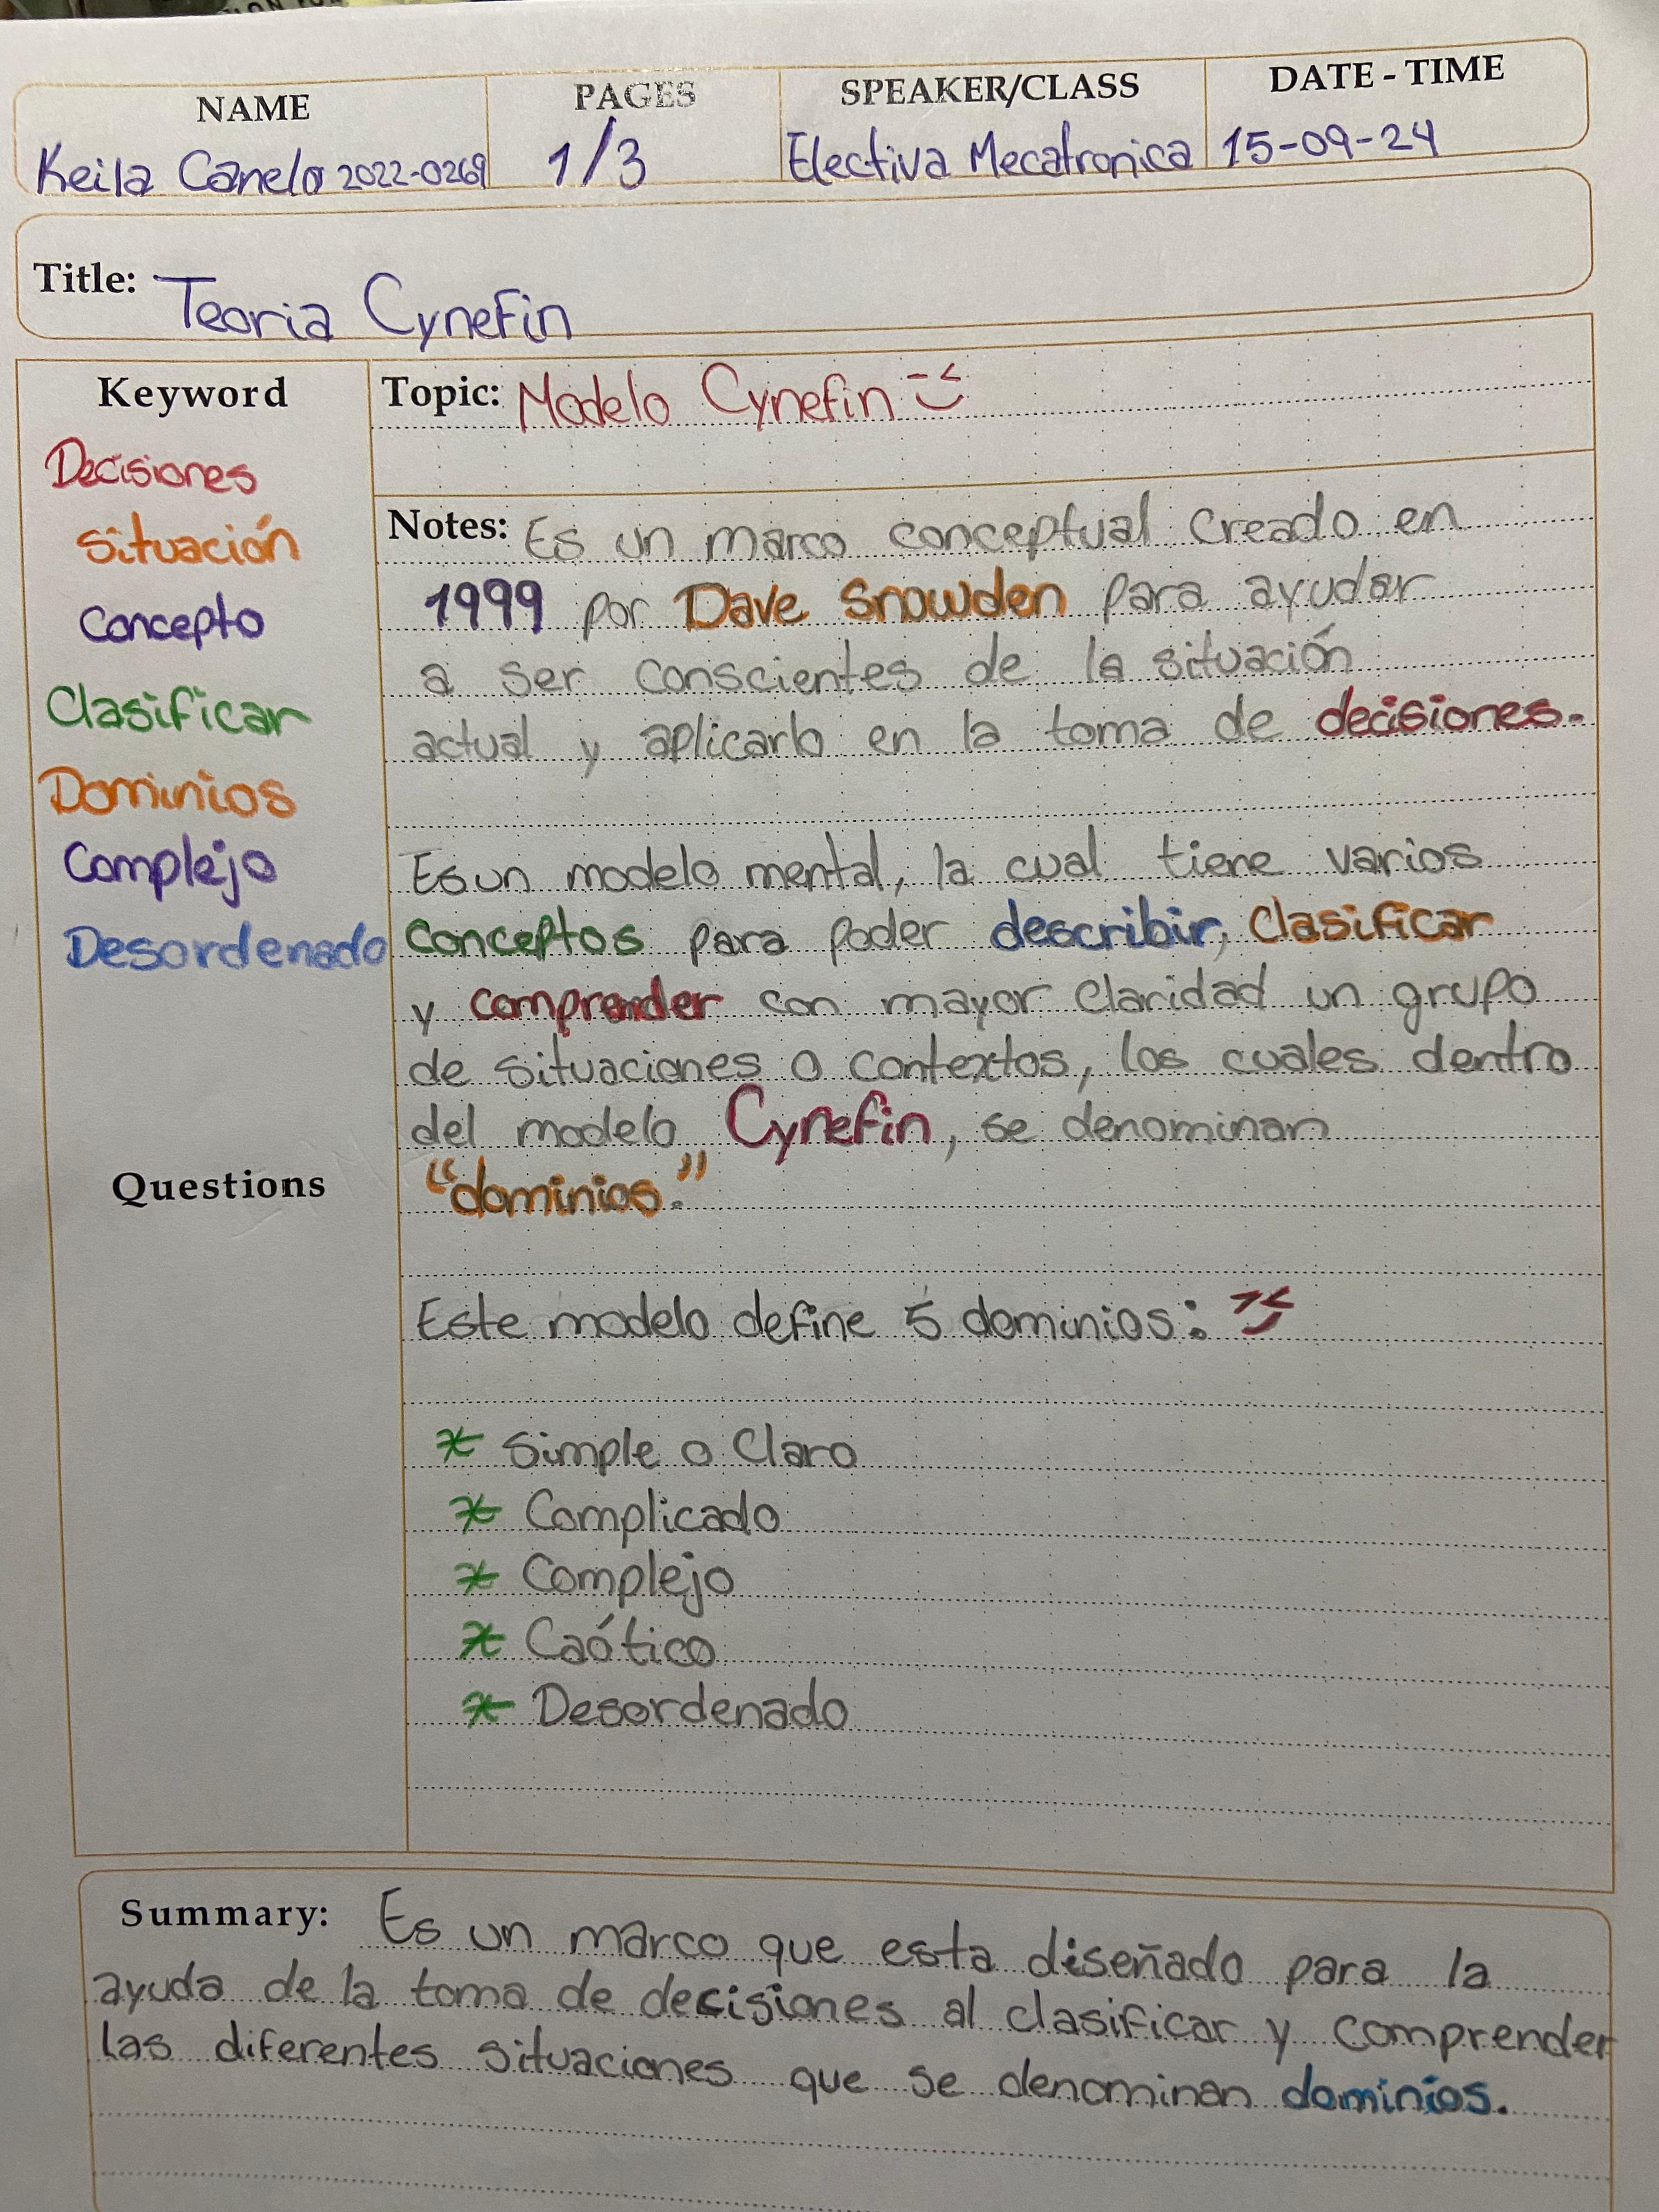 NAME
PAGES
SPEAKER/CLASS
DATE - TIME
Keila Canelo 2022-0269
1/3
Electiva Mecatronica
15-09-24
Title: Teoria Cynefin
Keyword
Decisiones
Situación
Concepto
Clasificar
Dominios
Complejo
Desordenado
Questions
Topic: Modelo Cynefin
Notes: Es un marco conceptual creado en
1999 por Dave Snowden para ayudar
a ser conscientes de la situación
actual y aplicarlo en la toma de decisiones.
Es un modelo mental, la cual tiene varios
Conceptos para poder describir, Clasificar
y comprender con mayor claridad un grupo
de situaciones o contextos, los cuales dentro
del modelo Cynefin, se denominan
"dominios."
Este modelo define 5 dominios:
* Simple o Claro
* Complicado
* Complejo
* Caótico
* Desordenado
Summary: Es un marco que esta diseñado para la
ayuda de la toma de decisiones al clasificar y comprender
las diferentes situaciones que se denominan dominios.